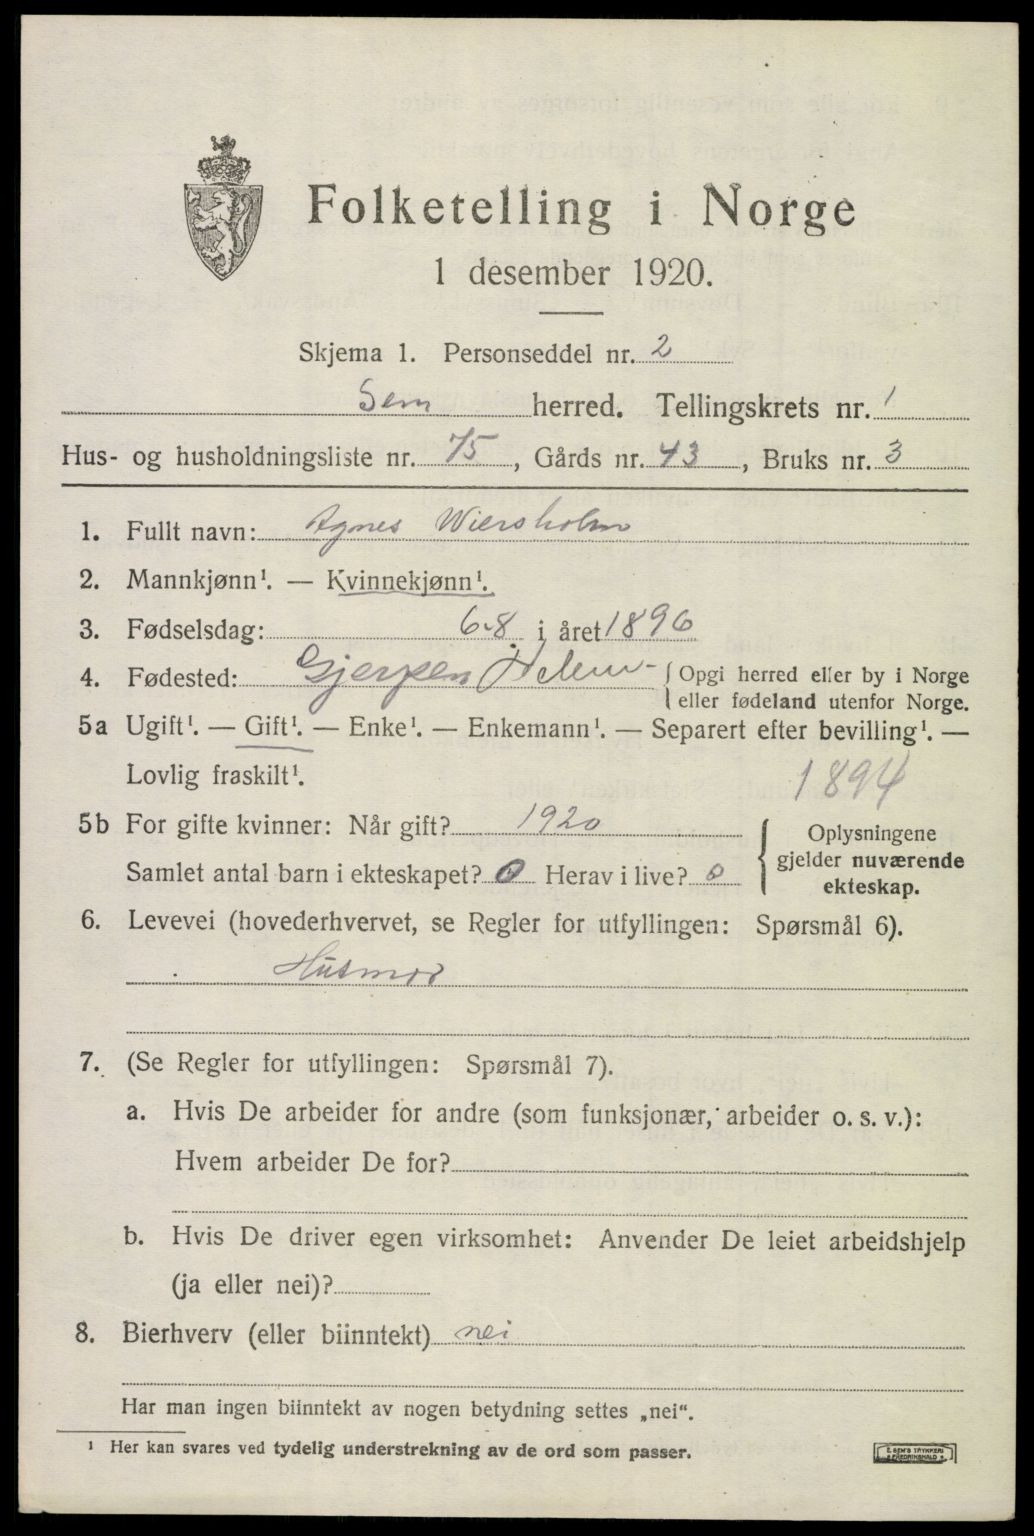 Folketelling i Norge
1 desember 1920.
Skjema 1. Personseddel nr. 2
Sem herred. Tellingskrets nr. 1
Hus- og husholdningsliste nr. 75, Gårds nr. 43, Bruks nr. 3
1. Fullt navn: Agnes Wiersholm
2. Mannkjønn¹. — Kvinnekjønn¹.
3. Fødselsdag: 6-8 i året 1896
4. Fødested: Gjerpen { Opgi herred eller by i Norge
eller fødeland utenfor Norge.
5a Ugift¹. — Gift¹. — Enke¹. — Enkemann¹. — Separert efter bevilling¹. —
Lovlig fraskilt¹.
1894
5b For gifte kvinner: Når gift? 1920
Samlet antal barn i ekteskapet? 0 Herav i live? 0
Oplysningene
gjelder nuværende
ekteskap.
6. Levevei (hovederhvervet, se Regler for utfyllingen: Spørsmål 6).
Husmor
7. (Se Regler for utfyllingen: Spørsmål 7).
a. Hvis De arbeider for andre (som funksjonær, arbeider o. s. v.):
Hvem arbeider De for?
b. Hvis De driver egen virksomhet: Anvender De leiet arbeidshjelp
(ja eller nei)?
8. Bierhverv (eller biinntekt) nei
Har man ingen biinntekt av nogen betydning settes „nei“.
¹ Her kan svares ved tydelig understrekning av de ord som passer.
E. SEM'S TRYKKERI
FREDRIKSHALD